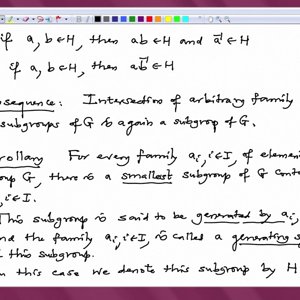 if a, b ∈ H, then ab ∈ H and a⁻¹ ∈ H
if a, b ∈ H, then ab⁻¹ ∈ H
sequence: Intersection of arbitrary family
subgroups of G is again a subgrop of G.
rollary For every family aᵢ, i∈I, of elemen
oup G, there is a smallest subgroup of G conta
, i∈I.
This subgroup is said to be generated by aᵢ,
nd the family aᵢ, i∈I, is called a generating s
this subgroup.
n this case we denote this subgroup by H